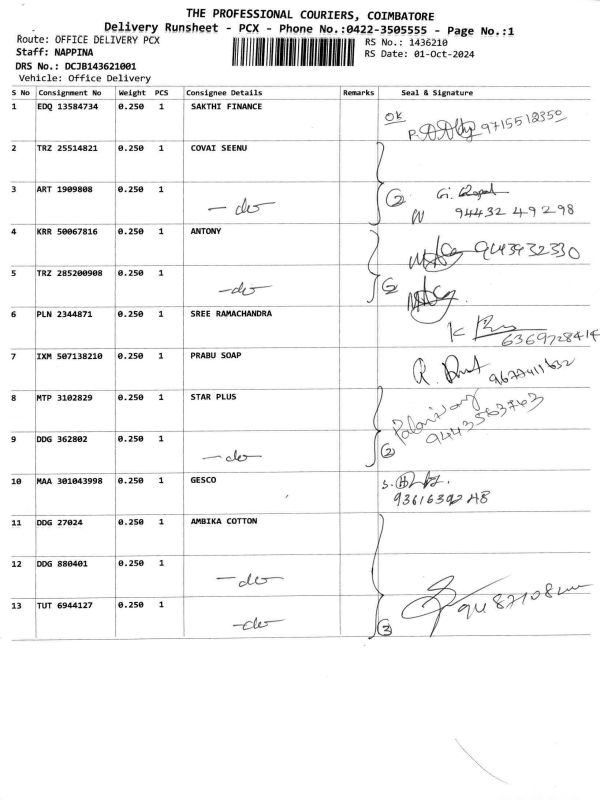 THE PROFESSIONAL COURIERS, COIMBATORE
Delivery Runsheet - PCX - Phone No.:0422-3505555 - Page No.:1
Route: OFFICE DELIVERY PCX RS No.: 1436210
Staff: NAPPINA RS Date: 01-Oct-2024
DRS No.: DCJB143621001
Vehicle: Office Delivery
S No Consignment No Weight PCS Consignee Details Remarks Seal & Signature
1 EDQ 13584734 0.250 1 SAKTHI FINANCE OK 9715512350
2 TRZ 25514821 0.250 1 COVAI SEENU
3 ART 1909808 0.250 1 -do- 2 94432 49298
4 KRR 50067816 0.250 1 ANTONY 9443932330
5 TRZ 285200908 0.250 1 -do- 2
6 PLN 2344871 0.250 1 SREE RAMACHANDRA 6369728414
7 IXM 507138210 0.250 1 PRABU SOAP
8 MTP 3102829 0.250 1 STAR PLUS 9443563763
9 DDG 362802 0.250 1 -do- 2
10 MAA 301043998 0.250 1 GESCO
11 DDG 27024 0.250 1 AMBIKA COTTON
12 DDG 880401 0.250 1 -do-
13 TUT 6944127 0.250 1 -do- 3